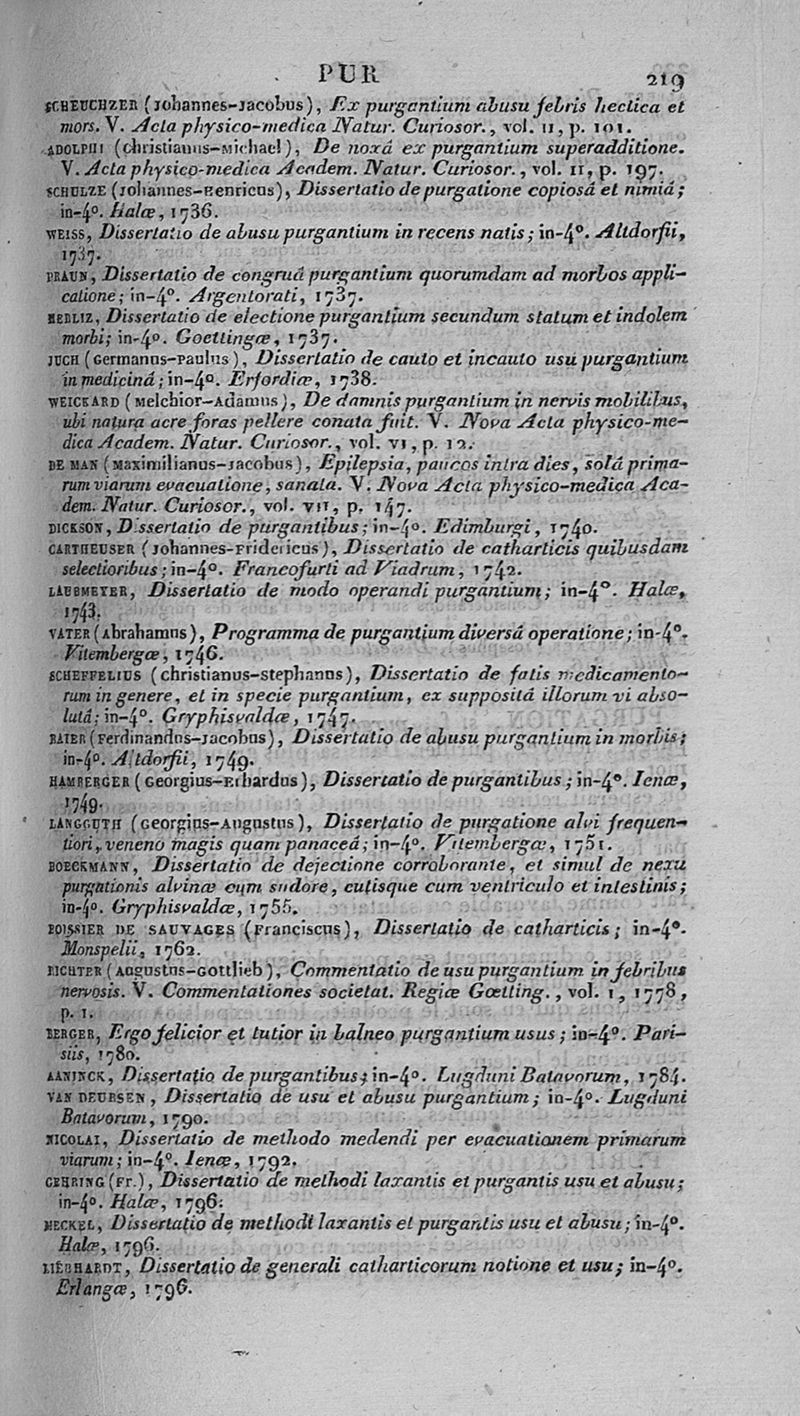 PUR 219
SCHEUCHZER (Johannes-Jacobus), Ex purgantium abusu febris hectica et
mors. V. Acta physico-medica Natur. Curiosor., vol. II, p. 101.
ADOLPHI (Christianus-Michael), De noxâ ex purgantium superadditione.
V. Acta physico-medica Academ. Natur. Curiosor., vol. II, p. 197.
SCHULZE (Johannes-Henricus), Dissertatio de purgatione copiosâ et nimiâ;
in-4º. Halæ, 1736.
WEISS, Dissertatio de abusu purgantium in recens natis; in-4º. Altdorfii,
1737.
PRAUN, Dissertatio de congruâ purgantium quorumdam ad morbos appli-
catione; in-4º. Argentorati, 1737.
HEBLIZ, Dissertatio de electione purgantium secundum statum et indolem
morbi; in-4º. Goettingæ, 1737.
JUCH (Germanus-Paulus), Dissertatio de cauto et incauto usu purgantium
in medicinâ; in-4º. Erfordiæ, 1738.
WEICKARD (Melchior-Adamus), De damnis purgantium in nervis mobilibus,
ubi natura acre foras pellere conata fuit. V. Nova Acta physico-me-
dica Academ. Natur. Curiosor., vol. VI, p. 12.
DE MAN (Maximilianus-Jacobus), Epilepsia, paucos intra dies, solâ prima-
rum viarum evacuatione, sanata. V. Nova Acta physico-medica Aca-
dem. Natur. Curiosor., vol. VII, p. 147.
DICKSON, Dissertatio de purgantibus; in-4º. Edimburgi, 1740.
CARTHEUSER (Johannes-Fridericus), Dissertatio de catharticis quibusdam
selectioribus; in-4º. Francofurti ad Viadrum, 1742.
LABBMEYER, Dissertatio de modo operandi purgantium; in-4º. Halæ,
1743.
VATER (Abrahamus), Programma de purgantium diversâ operatione; in-4º.
Vitembergæ, 1746.
SCHEFFELIUS (Christianus-Stephanus), Dissertatio de fatis medicamento-
rum in genere, et in specie purgantium, ex suppositâ illorum vi abso-
lutâ; in-4º. Gryphisvaldæ, 1747.
BAIER (Ferdinandus-Jacobus), Dissertatio de abusu purgantium in morbis;
in-4º. Altdorfii, 1749.
HAMBERGER (Georgius-Erhardus), Dissertatio de purgantibus; in-4º. Ienæ,
1749.
LANGGUTH (Georgius-Augustus), Dissertatio de purgatione alvi frequen-
tiori, veneno magis quam panaceâ; in-4º. Vitembergæ, 1751.
BOECKMANN, Dissertatio de dejectione corroborante, et simul de nexu
purgationis alvinæ cum sudore, cutisque cum ventriculo et intestinis;
in-4º. Gryphisvaldæ, 1755.
BOISSIER DE SAUVAGES (Franciscus), Dissertatio de catharticis; in-4º.
Monspelii, 1762.
RICHTER (Augustus-Gottlieb), Commentatio de usu purgantium in febribus
nervosis. V. Commentationes societat. Regiæ Gœtting., vol. 1, 1778,
p. 1.
BERGER, Ergo felicior et tutior in balneo purgantium usus; in-4º. Pari-
siis, 1780.
AANINCK, Dissertatio de purgantibus; in-4º. Lugduni Batavorum, 1784.
VAN DEURSEN, Dissertatio de usu et abusu purgantium; in-4º. Lugduni
Batavorum, 1790.
NICOLAI, Dissertatio de methodo medendi per evacuationem primarum
viarum; in-4º. Ienæ, 1792.
GEHRING (Fr.), Dissertatio de methodi laxantis et purgantis usu et abusu;
in-4º. Halæ, 1796.
MECKEL, Dissertatio de methodi laxantis et purgantis usu et abusu; in-4º.
Halæ, 1796.
LIÉBHARDT, Dissertatio de generali catharticorum notione et usu; in-4º.
Erlangæ, 1796.